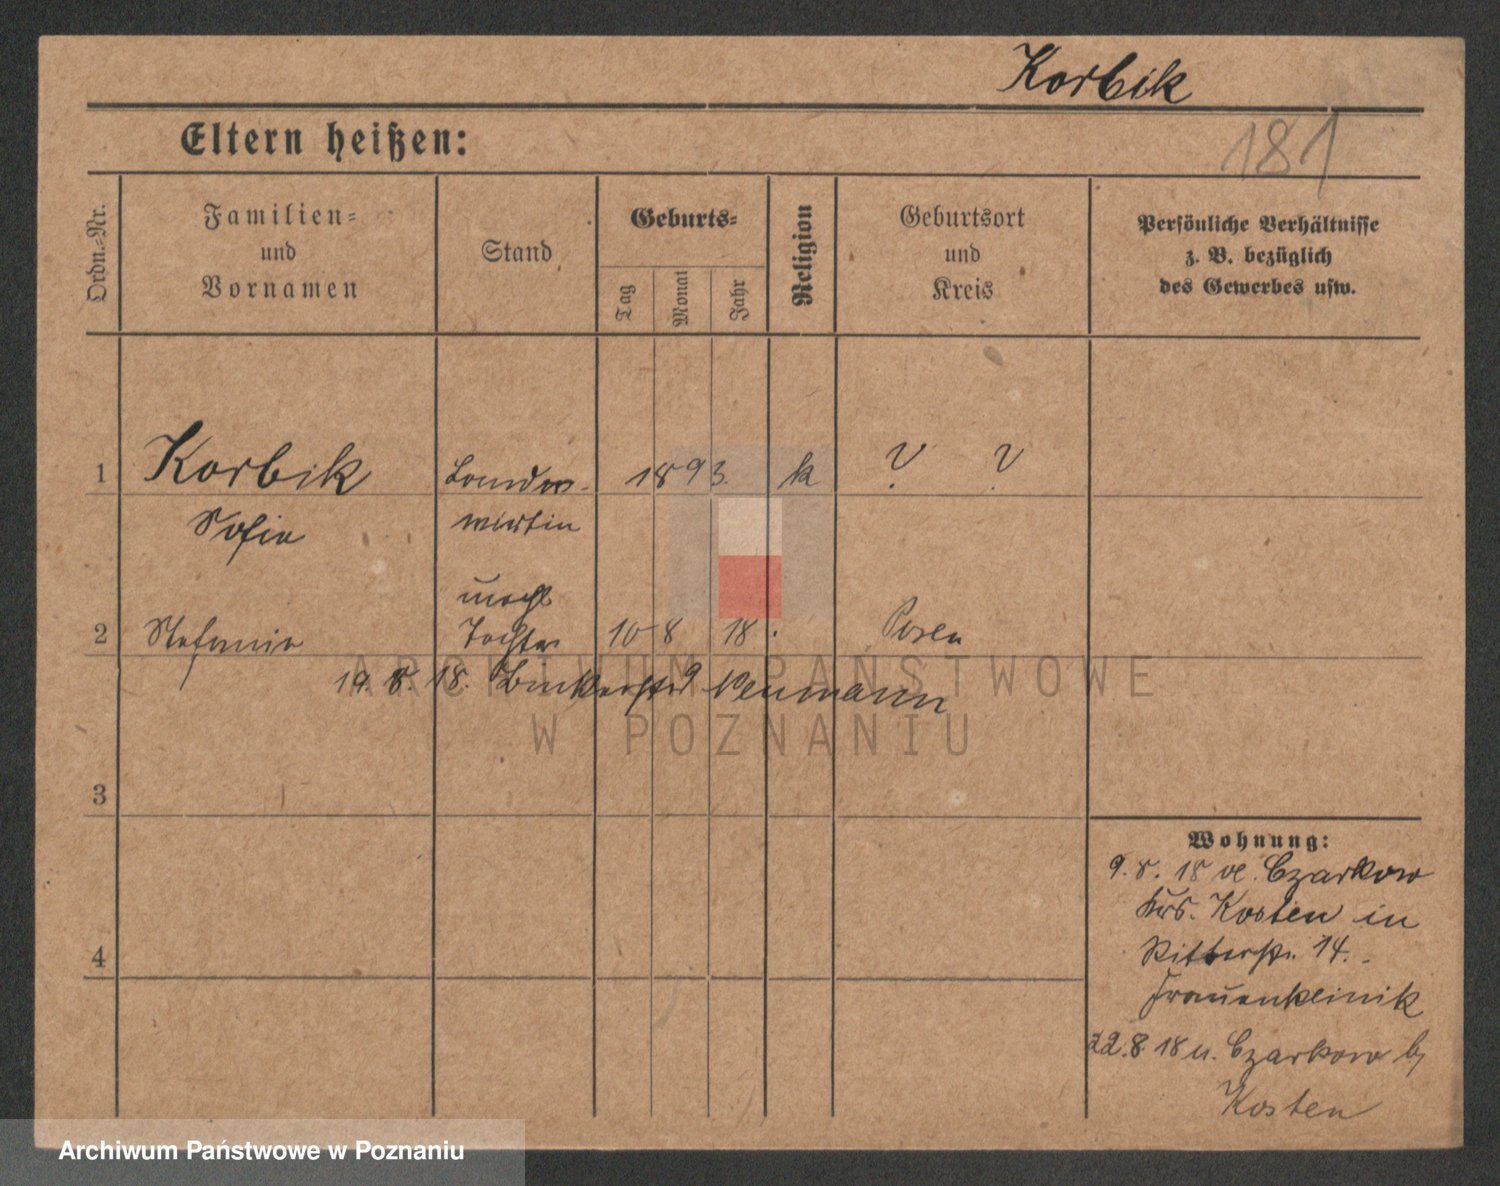 Korbik
Eltern heißen:
181
Ordn.-Nr.
Familien-
und
Vornamen
Stand
Geburts-
Tag
Monat
Jahr
Religion
Geburtsort
und
Kreis
Persönliche Verhältnisse
z. B. bezüglich
des Gewerbes usw.
1 Korbik 1893. k ? ?
Sofie wirtin
2 Stefanie Tochter 10 8 18. Posen
19. 8. 18. Neumann
ARCHIWUM PAŃSTWOWE
W POZNANIU
3
4
Wohnung:
9. 8. 18 v. Czarkow
Krs. Kosten in
Ritterstr. 14.
Frauenklinik
22. 8. 18 n. Czarkow b/
Kosten
Archiwum Państwowe w Poznaniu